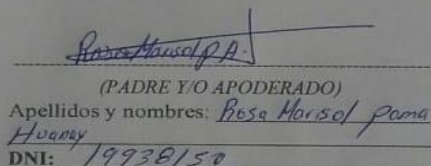 Rosa Marisol P.A.
(PADRE Y/O APODERADO)
Apellidos y nombres: Rosa Marisol Poma
Huanay
DNI: 19938150